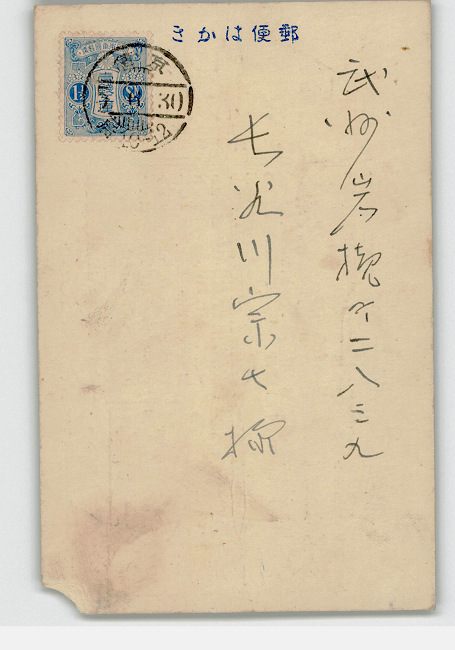 郵便はかき
武州岩槻町二八三九
長谷川宗七様
1½
30